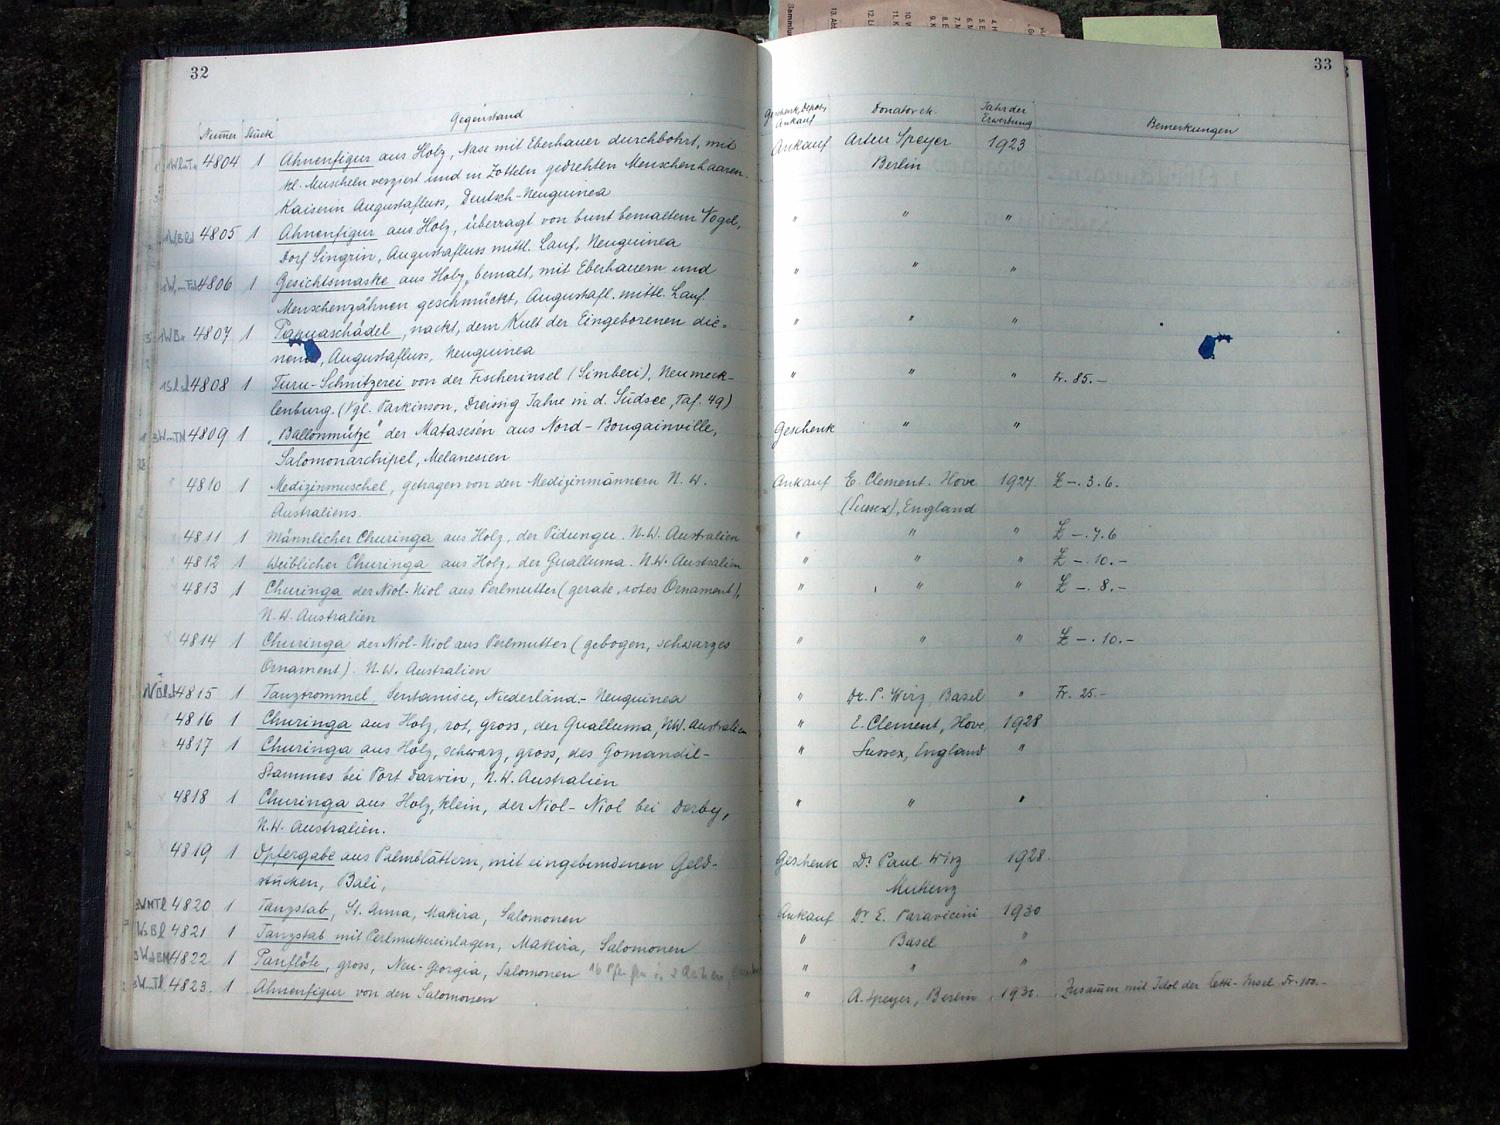 32
Numer Stück Gegenstand
4804 1 Ahnenfigur aus Holz, Nase mit Eberhauer durchbohrt, mit
kl. Muscheln verziert und in Zotteln gedrehten Menschenhaaren.
Kaiserin Augustafluss, Deutsch-Neuguinea
4805 1 Ahnenfigur aus Holz, überragt von bunt bemaltem Vogel,
Dorf Singrin, Augustafluss mittl. Lauf, Neuguinea
4806 1 Gesichtsmaske aus Holz, bemalt, mit Eberhauern und
Menschenzähnen geschmückt, Augustafl. mittl. Lauf.
4807 1 Papuaschädel, nackt, dem Kult der Eingeborenen die-
nend, Augustafluss, Neuguinea
4808 1 Turu-Schnitzerei von der Fischerinsel (Simberi), Neumeck-
lenburg. (Vgl. Parkinson, Dreissig Jahre in d. Südsee, Taf. 49)
4809 1 „Ballonmütze" der Matasesén aus Nord-Bougainville,
Salomonarchipel, Melanesien
4810 1 Medizinmuschel, getragen von den Medizinmännern N.W.
Australiens.
4811 1 Männlicher Churinga aus Holz, der Pidungu. N.W. Australien
4812 1 Weiblicher Churinga aus Holz, der Gualluma. N.W. Australien
4813 1 Churinga der Niol-Niol aus Perlmutter (gerade, rotes Ornament),
N.W. Australien
4814 1 Churinga der Niol-Niol aus Perlmutter (gebogen, schwarzes
Ornament). N.W. Australien
4815 1 Tanztrommel, Sentanisee, Niederländ.-Neuguinea
4816 1 Churinga aus Holz, rot, gross, der Qualluma, N.W. Australien
4817 1 Churinga aus Holz, schwarz, gross, des Gomandil-
Stammes bei Port Darwin, N.W. Australien
4818 1 Churinga aus Holz, klein, der Niol-Niol bei Derby,
N.W. Australien.
4819 1 Opfergabe aus Palmblättern, mit eingebundenen Geld-
stücken, Bali,
4820 1 Tanzstab, St. Anna, Makira, Salomonen
4821 1 Tanzstab mit Perlmuttereinlagen, Makira, Salomonen
4822 1 Panflöte, gross, Neu-Georgia, Salomonen
4823. 1 Ahnenfigur von den Salomonen
33
Geschenk, Depos, Donator etc. Jahr der Bemerkungen
Ankauf Erwerbung
Ankauf Artur Speyer 1923
Berlin
" " "
" " "
" " "
" " " Fr. 85.-
Geschenk " "
Ankauf E. Clement. Hove 1927. £ -. 3. 6.
(Sussex), England
" " " £ -. 7. 6
" " " £ -. 10. -
" " " £ -. 8. -
" " " £ -. 10. -
" Dr. P. Wirz, Basel " Fr. 25.-
" E. Clement, Hove, 1928
" Sussex, England "
" " "
Geschenk Dr Paul Wirz 1928.
Ankauf Dr E. Paravicini 1930
" Basel "
" " "
" A. Speyer, Berlin Zusammen mit Idol der Letti-Insel Fr. 100.-